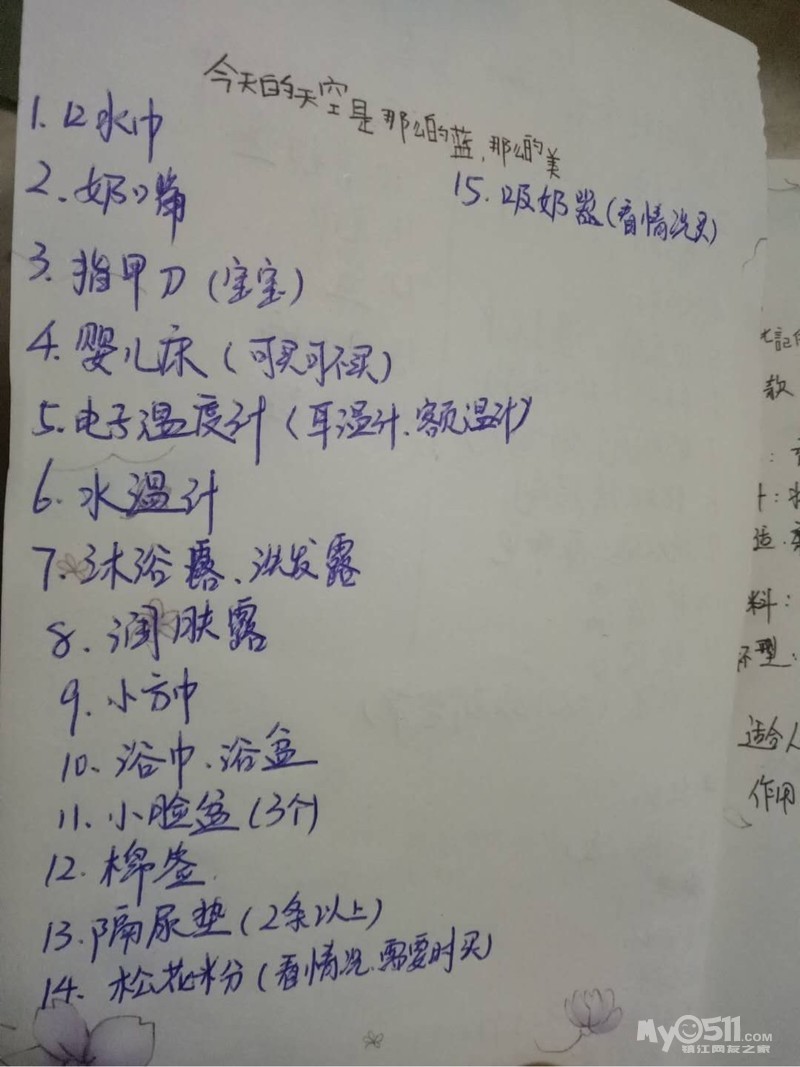 今天的天空是那么的蓝、那么的美
1. 口水巾
2. 奶嘴
3. 指甲刀(宝宝)
4. 婴儿床(可买可不买)
5. 电子温度计(耳温计、额温计)
6. 水温计
7. 沐浴露、洗发露
8. 润肤露
9. 小方巾
10. 浴巾、浴盆
11. 小脸盆(3个)
12. 棉签
13. 隔尿垫(2条以上)
14. 松花粉(看情况、需要时买)
15. 吸奶器(看情况买)
記
款
:
适
料:
型
适合人
作用
My0511.com
镇江网友之家